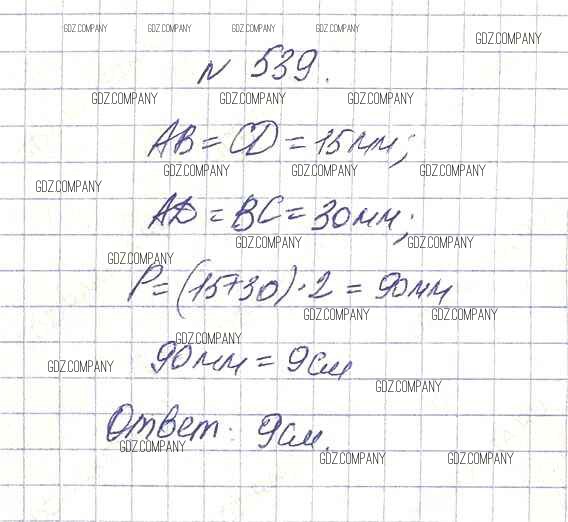 GDZ.COMPANY GDZ.COMPANY GDZ.COMPANY GDZ.COMPANY GDZ.COMPANY
№ 539.
GDZ.COMPANY GDZ.COMPANY GDZ.COMPANY
AB = CD = 15мм;
GDZ.COMPANY GDZ.COMPANY GDZ.COMPANY
GDZ.COMPANY
AD = BC = 30мм;
GDZ.COMPANY GDZ.COMPANY
GDZ.COMPANY
P = (15+30)·2 = 90мм
GDZ.COMPANY GDZ.COMPANY
GDZ.COMPANY
90мм = 9см
GDZ.COMPANY
GDZ.COMPANY
Ответ: 9см.
GDZ.COMPANY
GDZ.COMPANY GDZ.COMPANY